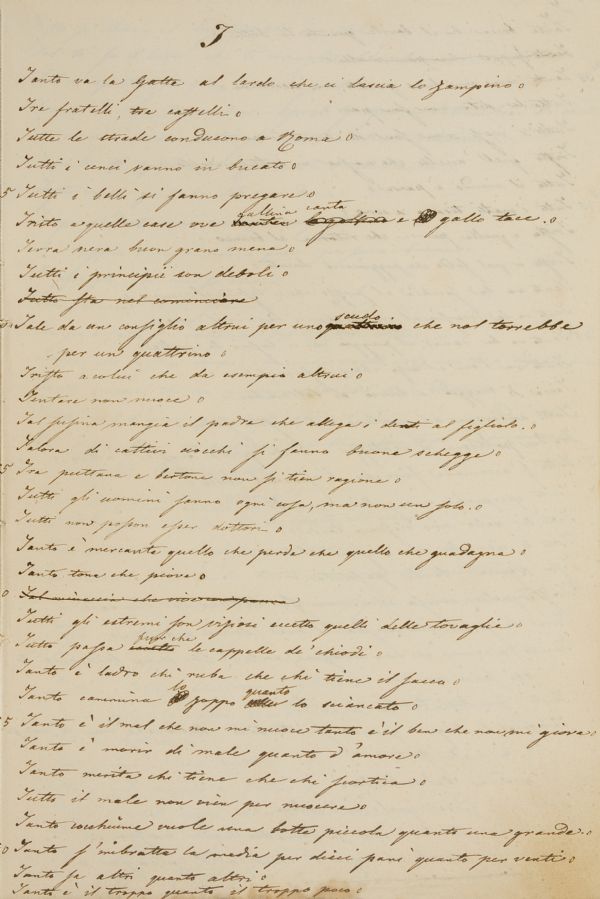 T
Tanto va la Gatta al lardo che ci lascia lo zampino
Tre fratelli, tre castelli
Tutte le strade conducono a Roma
Tutti i cenci vanno in bucato
5 Tutti i belli si fanno pregare
gallina canta
Tristo a quelle case ove e gallo tace.
Terra nera buon grano mena
Tutti i principii son deboli
Tutto sta nel cominciare
scudo
Tale da un consiglio altrui per uno quattrino che nol torrebbe
per un quattrino
Tristo a colui che da esempio altrui
Tentare non nuoce
Tal susina mangia il padre che allega i denti al figliolo.
Talora di cattivi ciocchi si fanno buone schegge
5 Tra puttana e bertone non si tien ragione
Tutti gli uomini sanno ogni cosa, ma non un solo.
Tutti non posson esser dottori
Tanto è mercante quello che perde che quello che guadagna
Tanto tona che piove
0 Tal minaccia che vive con paura
Tutti gli estremi son viziosi eccetto quelli delle tovaglie
fuor che
Tutto passa eccetto le cappelle de' chiodi
Tanto è ladro chi ruba che chi tiene il sacco
lo quanto
Tanto cammina zoppo lo sciancato
5 Tanto è il mal che non mi nuoce tanto è il ben che non mi giova
Tanto è morir di male quanto d'amore
Tanto merita chi tiene che chi scortica
Tutto il male non vien per nuocere
Tanto cocchiume vuole una botte piccola quanto una grande.
0 Tanto s'imbratta la madia per dieci pani quanto per venti
Tanto sa altri quanto altri
Tanto è il troppo quanto il troppo poco